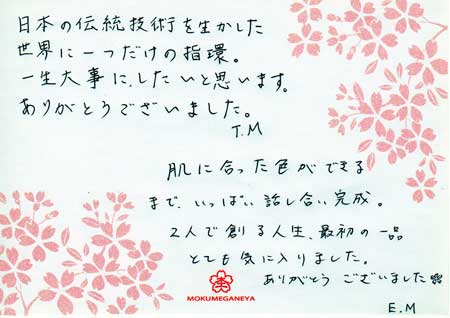 日本の伝統技術を生かした
世界に一つだけの指環。
一生大事に、したいと思います。
ありがとうございました。
T.M
肌に合った色ができる
まで、いっぱい話し合い完成。
2人で創る人生、最初の一品
とても気に入りました。
ありがとう ございました
E.M
MOKUMEGANEYA